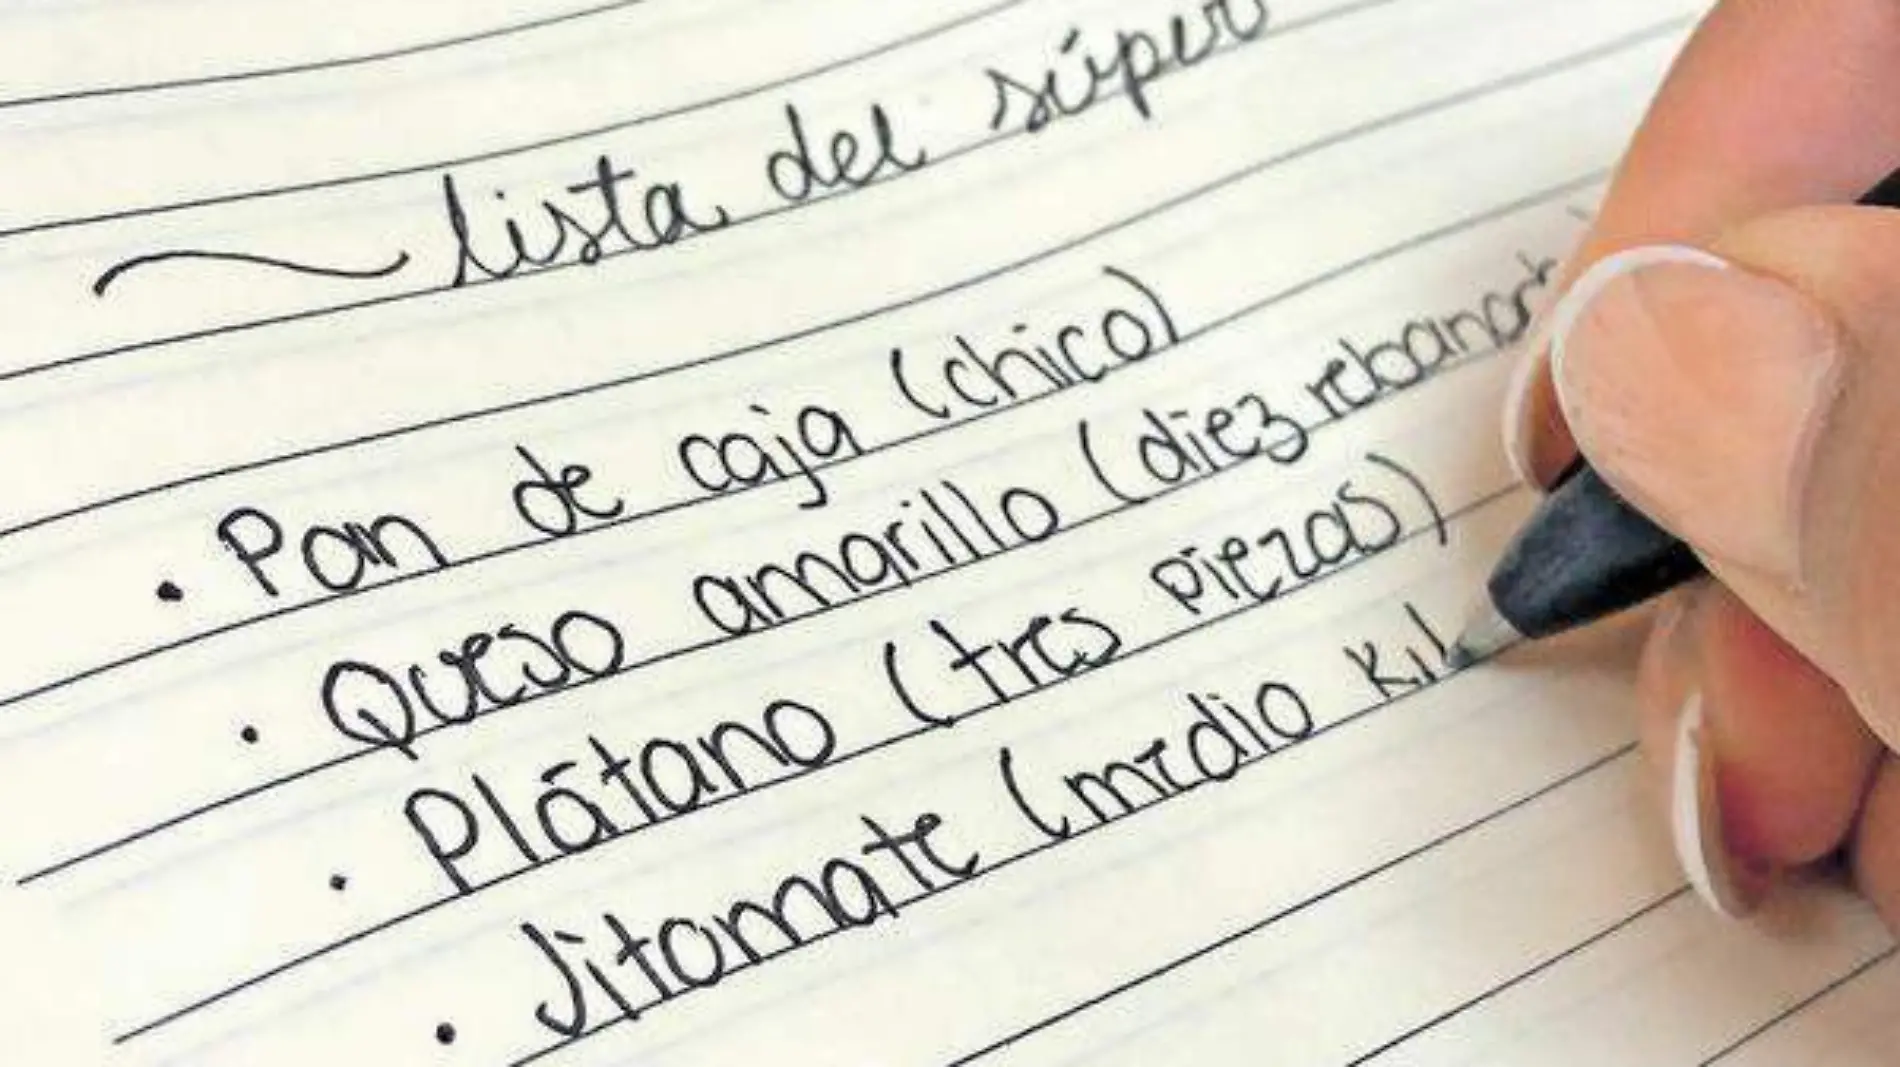 lista del súper
· Pan de caja (chico)
· Queso amarillo (diez
· Plátano (tres piezas)
· Jitomate (medio